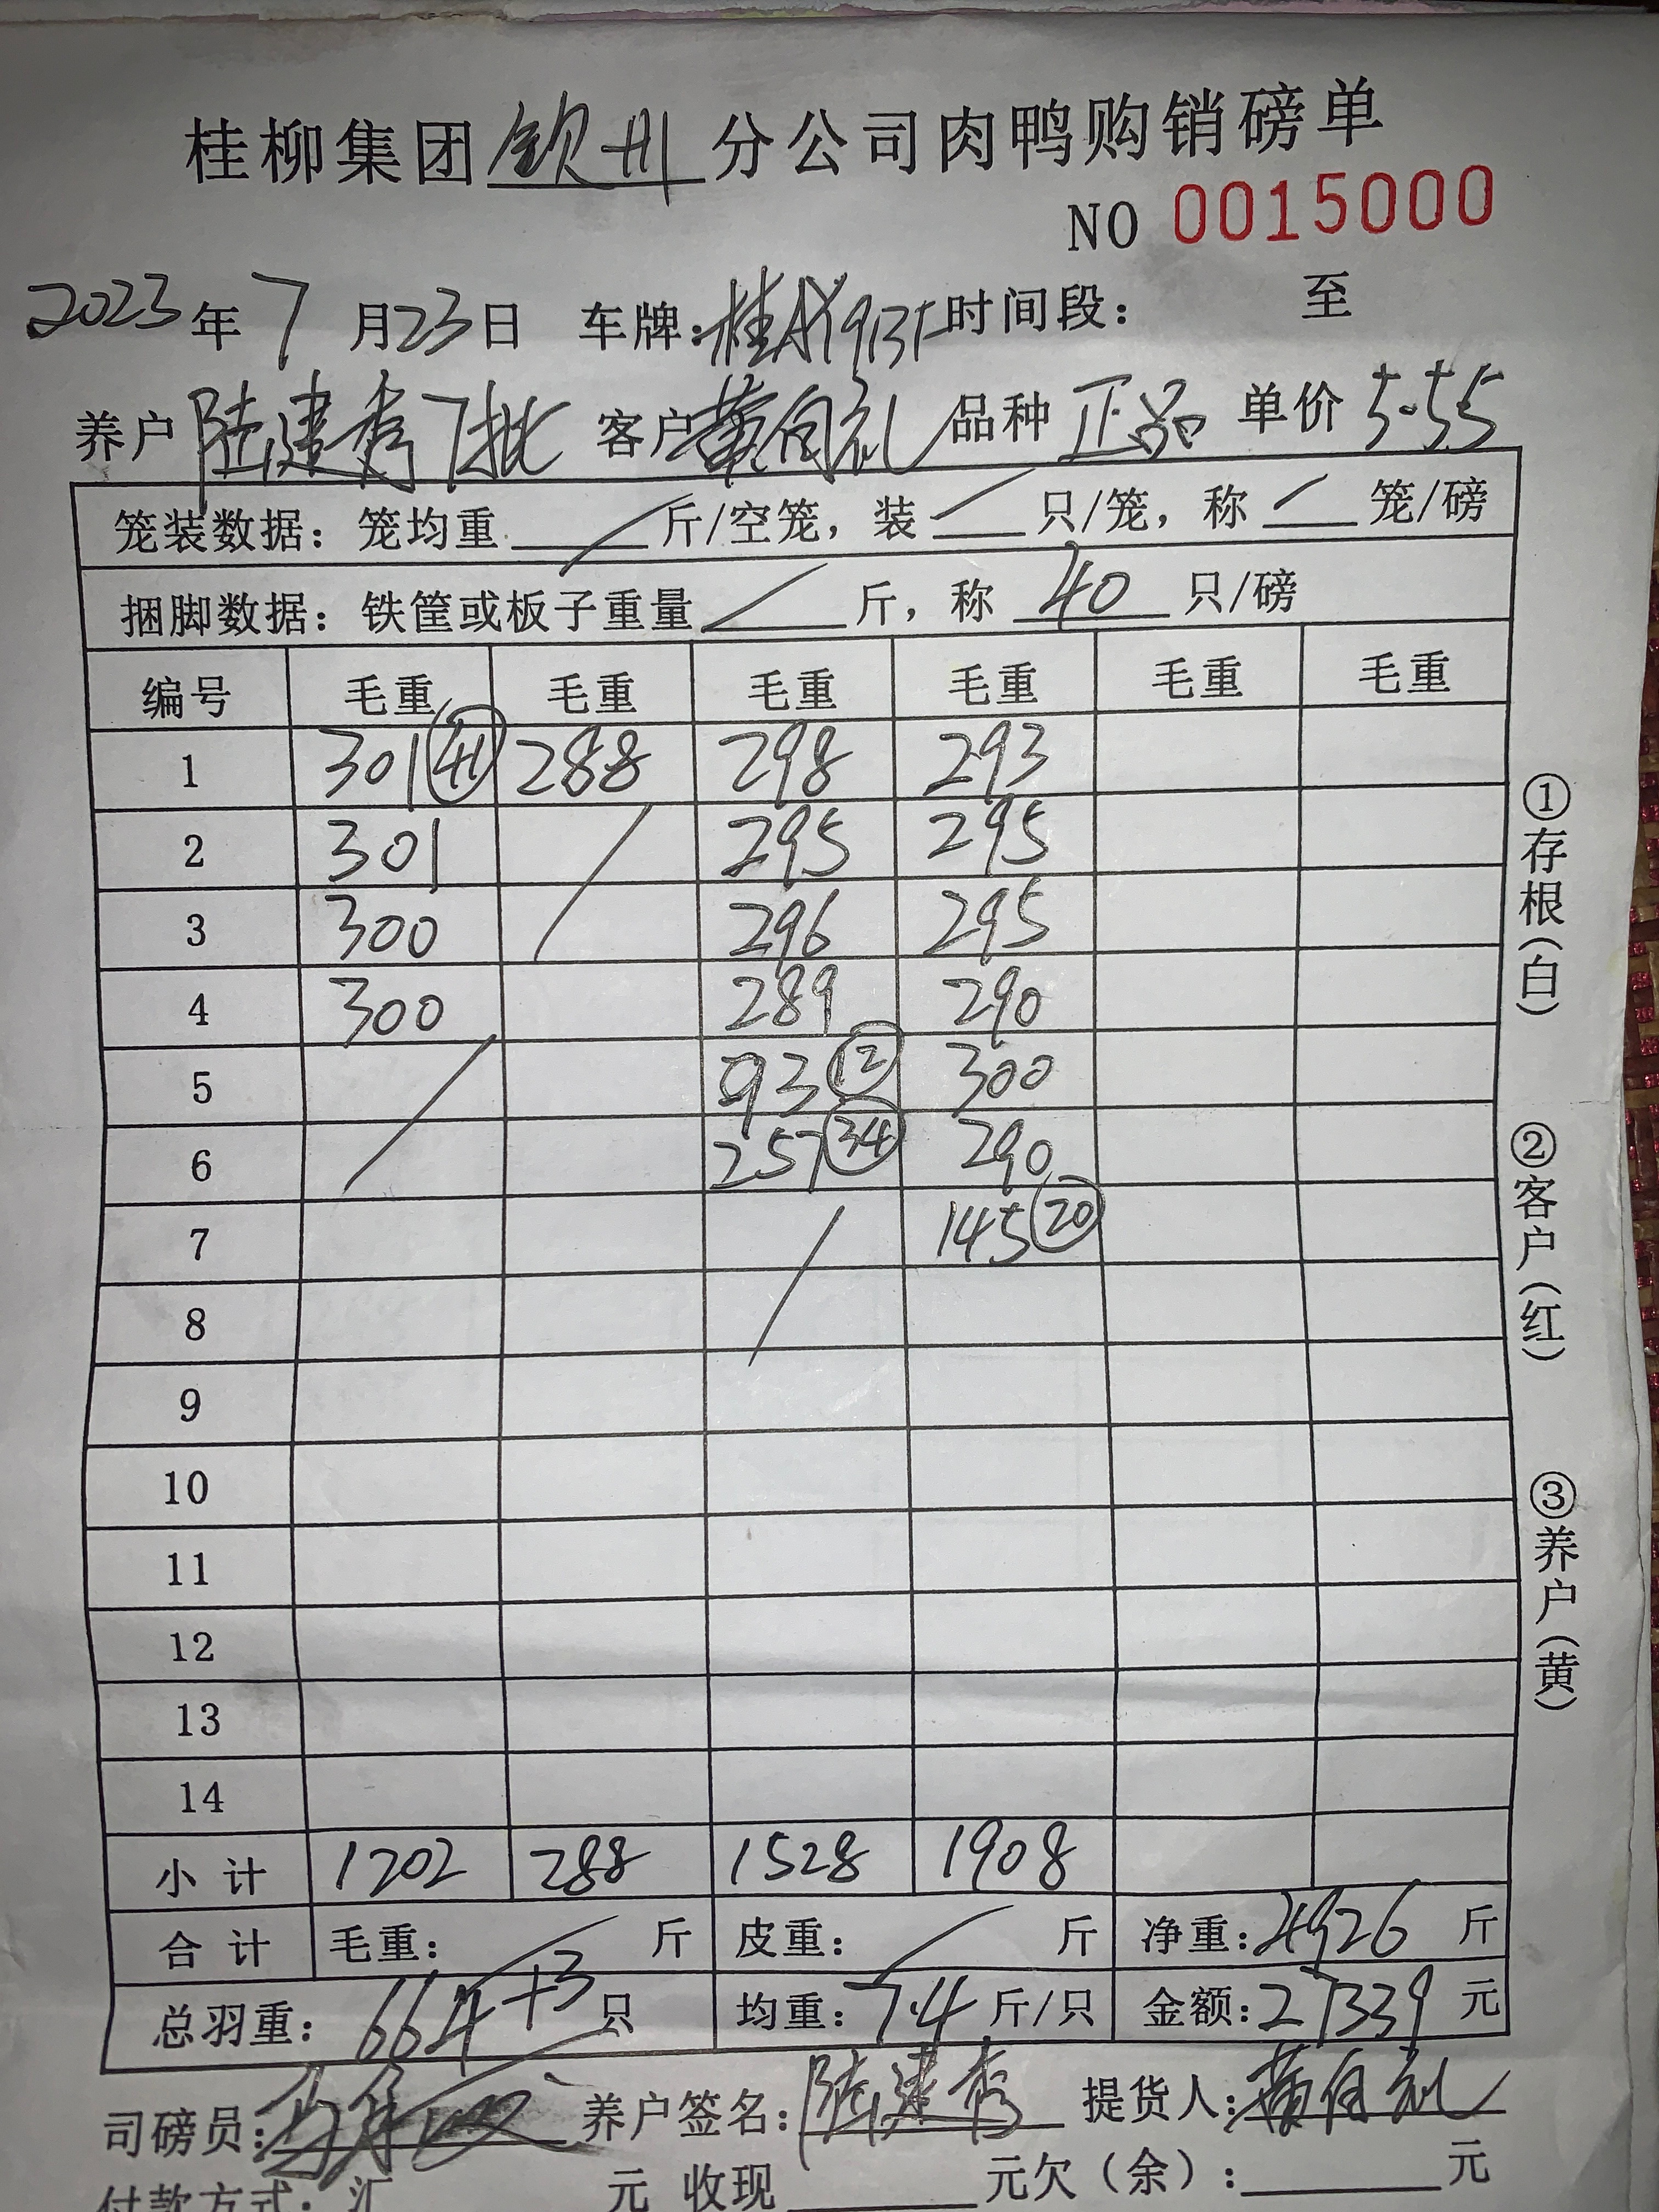 桂柳集团钦州分公司肉鸭购销磅单
NO 0015000
2023年7月23日 车牌:桂AY9135时间段: 至
养户 陆建秀7批 客户黄向礼 品种 正品 单价 5.55
笼装数据: 笼均重 / 斤/空笼, 装 / 只/笼, 称 / 笼/磅
捆脚数据: 铁筐或板子重量 / 斤, 称 40 只/磅
编号 毛重 毛重 毛重 毛重 毛重 毛重
1 301 (41) 288 298 293
2 301 / 295 295
3 300 296 295
4 300 289 290
5 / 93 (12) 300
6 257 (34) 290
7 / 145 (20)
8
9
10
11
12
13
14
小计 1202 288 1528 1908
合计 毛重: / 斤 皮重: / 斤 净重: 4926 斤
总羽重: 664+3 只 均重: 7.4 斤/只 金额: 27339 元
司磅员: 养户签名: 陆建秀 提货人: 黄向礼
付款方式: 汇 元 收现 元欠(余): 元
①存根(白)
②客户(红)
③养户(黄)